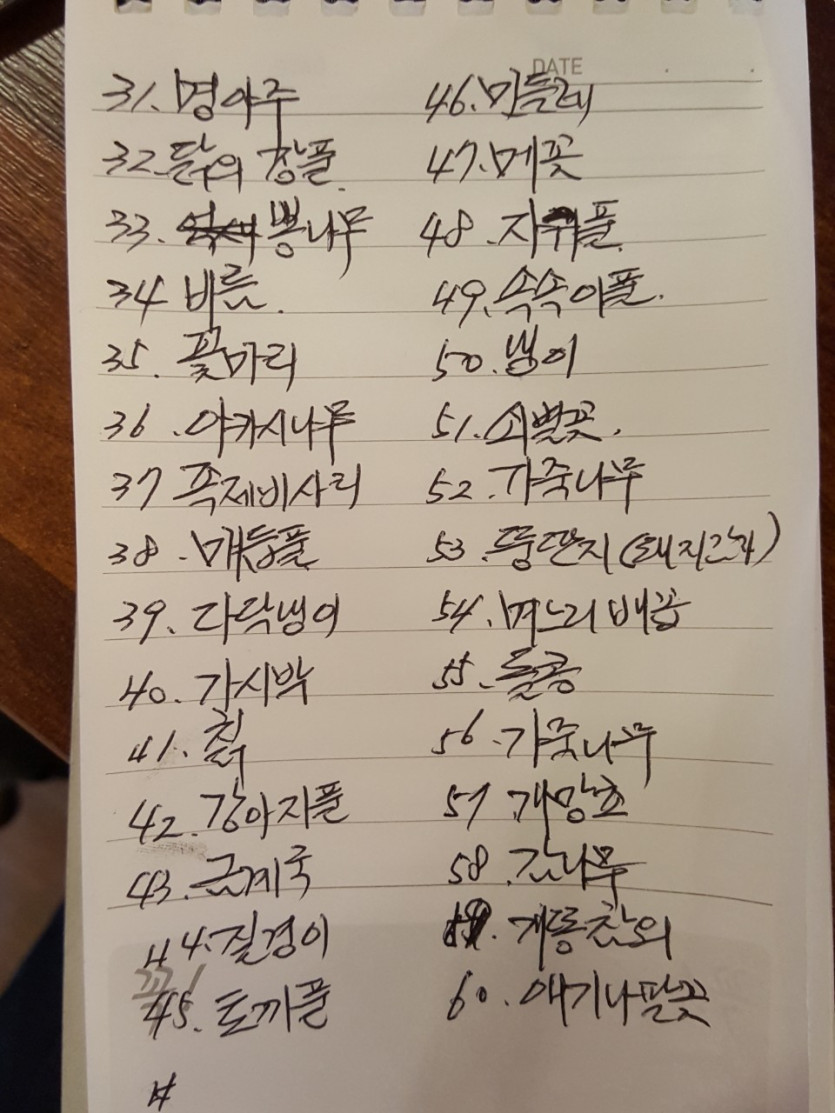 DATE
31. 명아주
32. 닭의 장풀.
33. 뽕나무
34 비름.
35. 꽃마리
36. 아카시나무
37 족제비사리
38. 매듭풀
39. 다닥냉이
40. 가시박
41. 칡
42. 강아지풀
43. 금계국
44. 질경이
45. 토끼풀
46. 민들레
47. 메꽃
48. 지취풀.
49. 속속이풀.
50. 냉이
51. 쇠별꽃.
52. 가죽나무
53. 뚱딴지 (돼지감자)
54. 며느리배꼽
55. 돌콩
56. 가죽나무
57 개망초
58. 감나무
59. 개똥참외
60. 애기나팔꽃